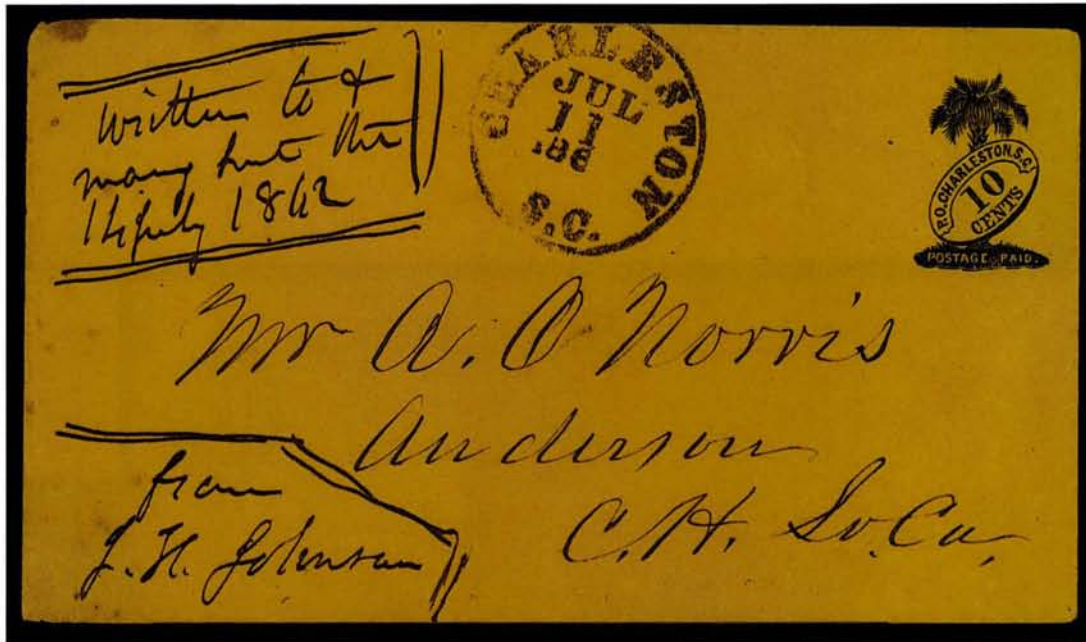 Written to &
11 July 1862
CHARLESTON
JUL
11
186
S.C.
P.O. CHARLESTON. S.C.
10
CENTS
POSTAGE PAID.
Mr A. O Norris
Anderson
C.H. So. Ca.
from
J. H. Johnson